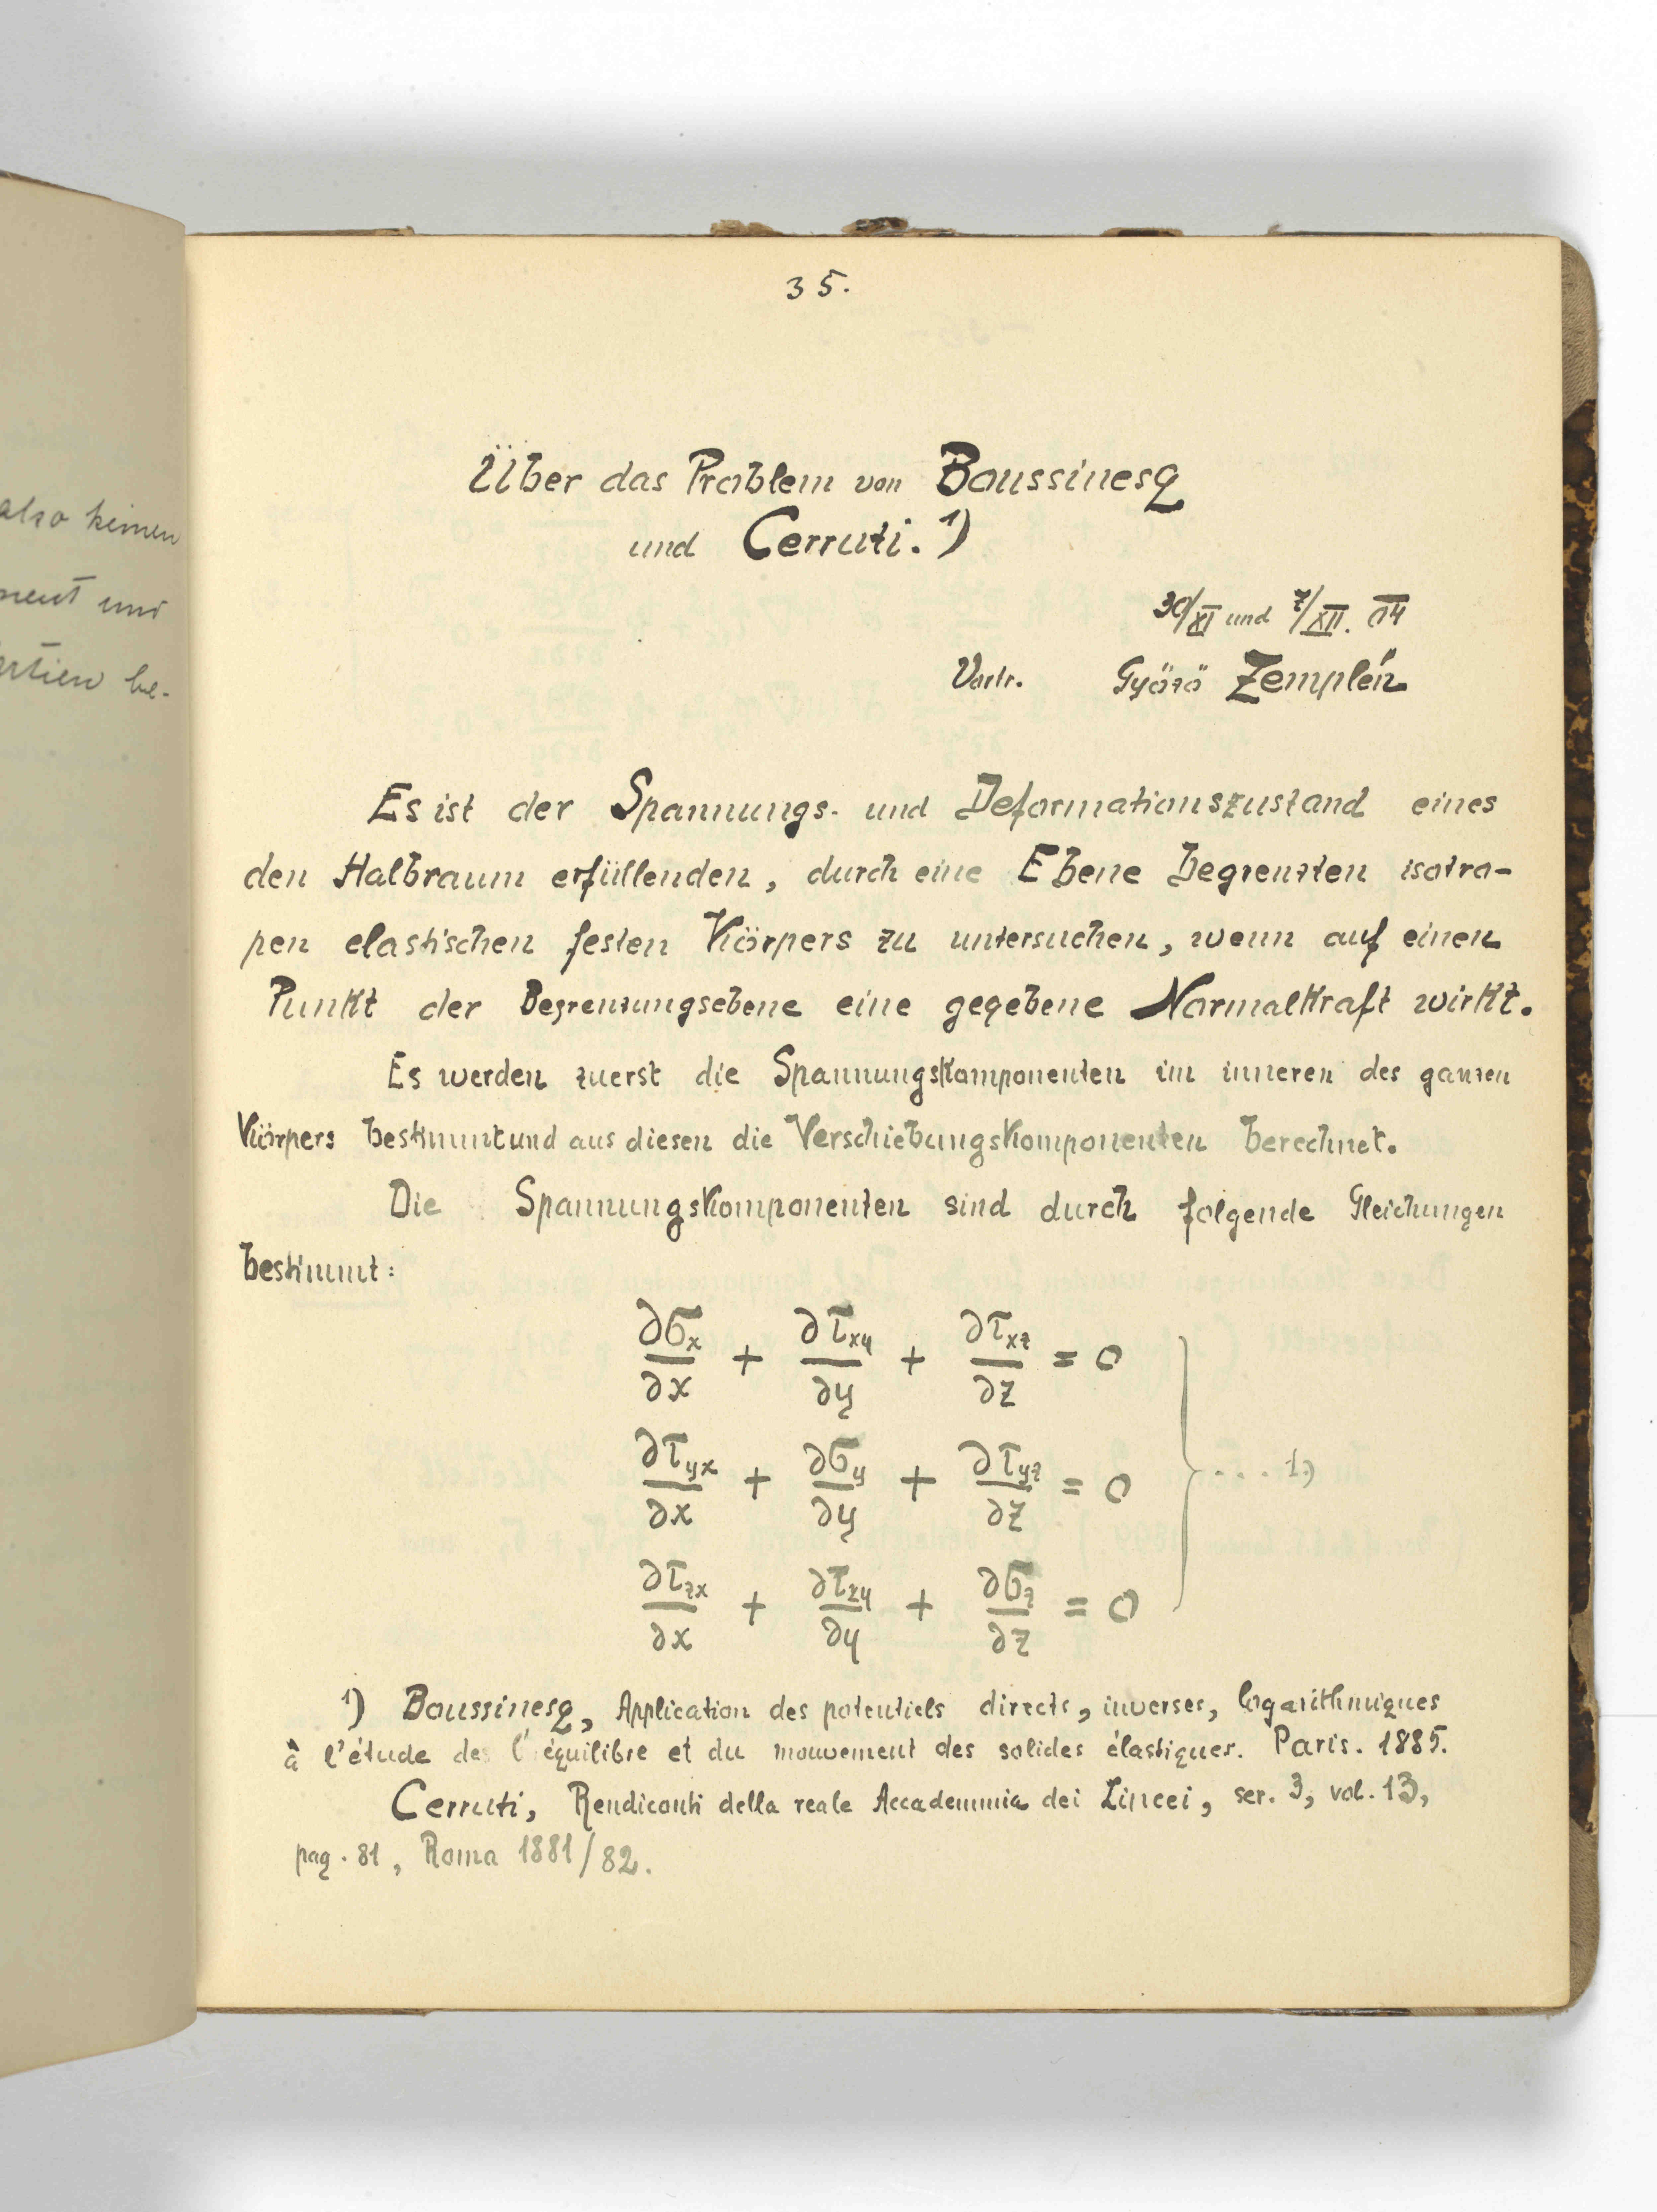 35.
also keinen
und
be-
Über das Problem von Boussinesq
und Cerruti. 1)
30/XI und 7/XII. 04
Vortr. Győző Zemplén
Es ist der Spannungs- und Deformationszustand eines
den Halbraum erfüllenden, durch eine Ebene begrenzten isotro-
pen elastischen festen Körpers zu untersuchen, wenn auf einen
Punkt der Begrenzungsebene eine gegebene Normalkraft wirkt.
Es werden zuerst die Spannungskomponenten im inneren des ganzen
Körpers bestimmt und aus diesen die Verschiebungskomponenten berechnet.
Die Spannungskomponenten sind durch folgende Gleichungen
bestimmt:
∂σx/∂x + ∂τxy/∂y + ∂τxz/∂z = 0
∂τyx/∂x + ∂σy/∂y + ∂τyz/∂z = 0 } . . . 1)
∂τzx/∂x + ∂τzy/∂y + ∂σz/∂z = 0
1) Boussinesq, Application des potentiels directs, inverses, logarithmiques
à l'étude de l'équilibre et du mouvement des solides élastiques. Paris. 1885.
Cerruti, Rendiconti della reale Accademmia dei Lincei, ser. 3, vol. 13,
pag. 81, Roma 1881/82.